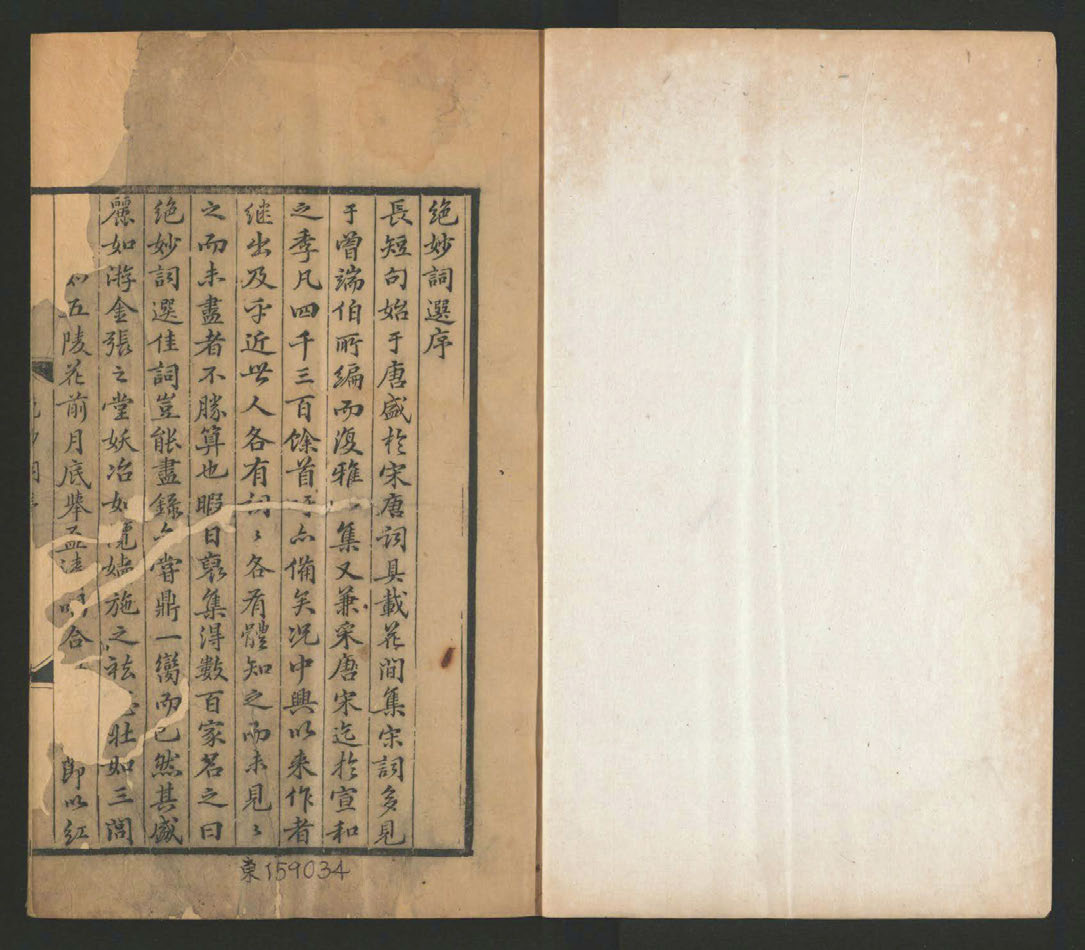 絶妙詞選序
長短句始于唐盛於宋唐詞具載花間集宋詞多見
于曾端伯所編而復雅一集又兼采唐宋迄於宣和
之季凡四千三百餘首吁亦備矣况中興以来作者
继出及乎近世人各有詞〻各有體知之而未見〻
之而未盡者不勝算也暇日裒集得數百家名之曰
絶妙詞選佳詞豈能盡錄亦嘗鼎一臠而已然其盛
麗如游金張之堂妖冶如攬嬙施之袪悲壯如三閭
如五陵花前月底舉盃清唱合
即以紅
東159034